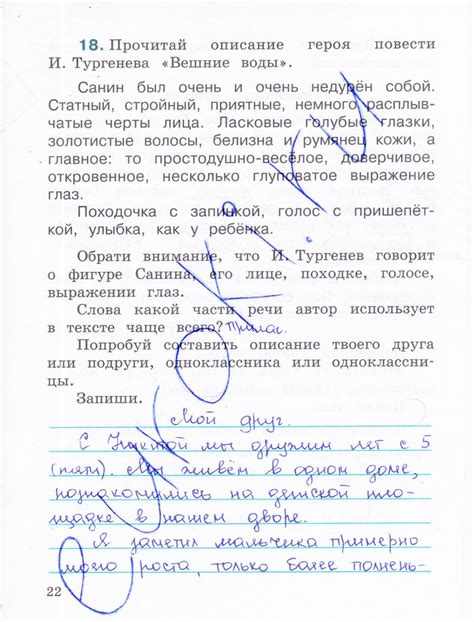 18. Прочитай описание героя повести
И. Тургенева «Вешние воды».
Санин был очень и очень недурён собой.
Статный, стройный, приятные, немного расплыв-
чатые черты лица. Ласковые голубые глазки,
золотистые волосы, белизна и румянец кожи, а
главное: то простодушно-весёлое, доверчивое,
откровенное, несколько глуповатое выражение
глаз.
Походочка с запинкой, голос с пришепёт-
кой, улыбка, как у ребёнка.
Обрати внимание, что И. Тургенев говорит
о фигуре Санина, его лице, походке, голосе,
выражении глаз.
Слова какой части речи автор использует
в тексте чаще всего? Прилаг.
Попробуй составить описание твоего друга
или подруги, одноклассника или одноклассни-
цы.
Запиши.
Мой друг.
С Никитой мы дружим лет с 5
(пяти). Мы живём в одном доме,
познакомились на детской пло-
щадке в нашем дворе.
Я заметил мальчика примерно
моего роста, только более полнень-
22